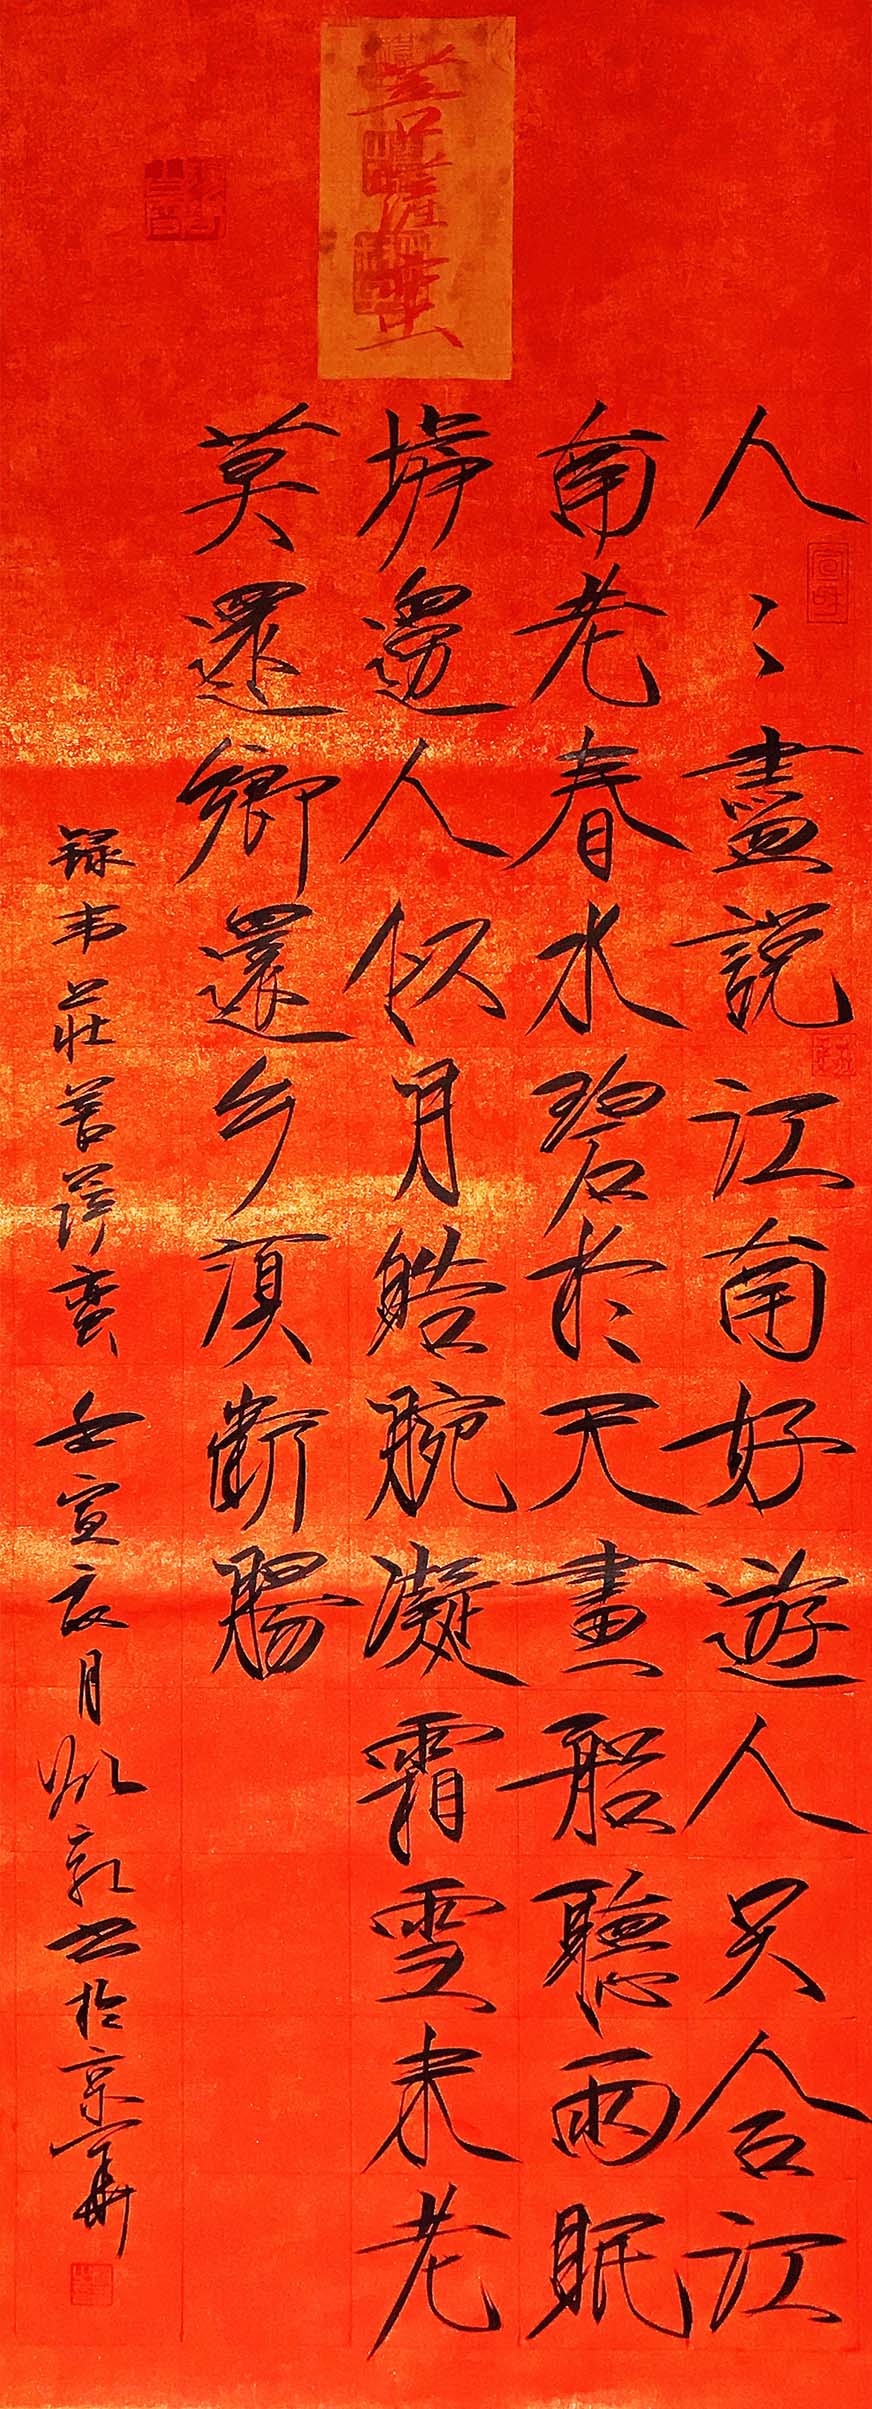 菩薩蛮
人〻盡說江南好遊人只合江
南老春水碧於天畫船聽雨眠
壚邊人似月皓腕凝霜雪未老
莫還鄉還乡須斷腸
録韦莊菩萨蛮 壬寅亥月书於京華